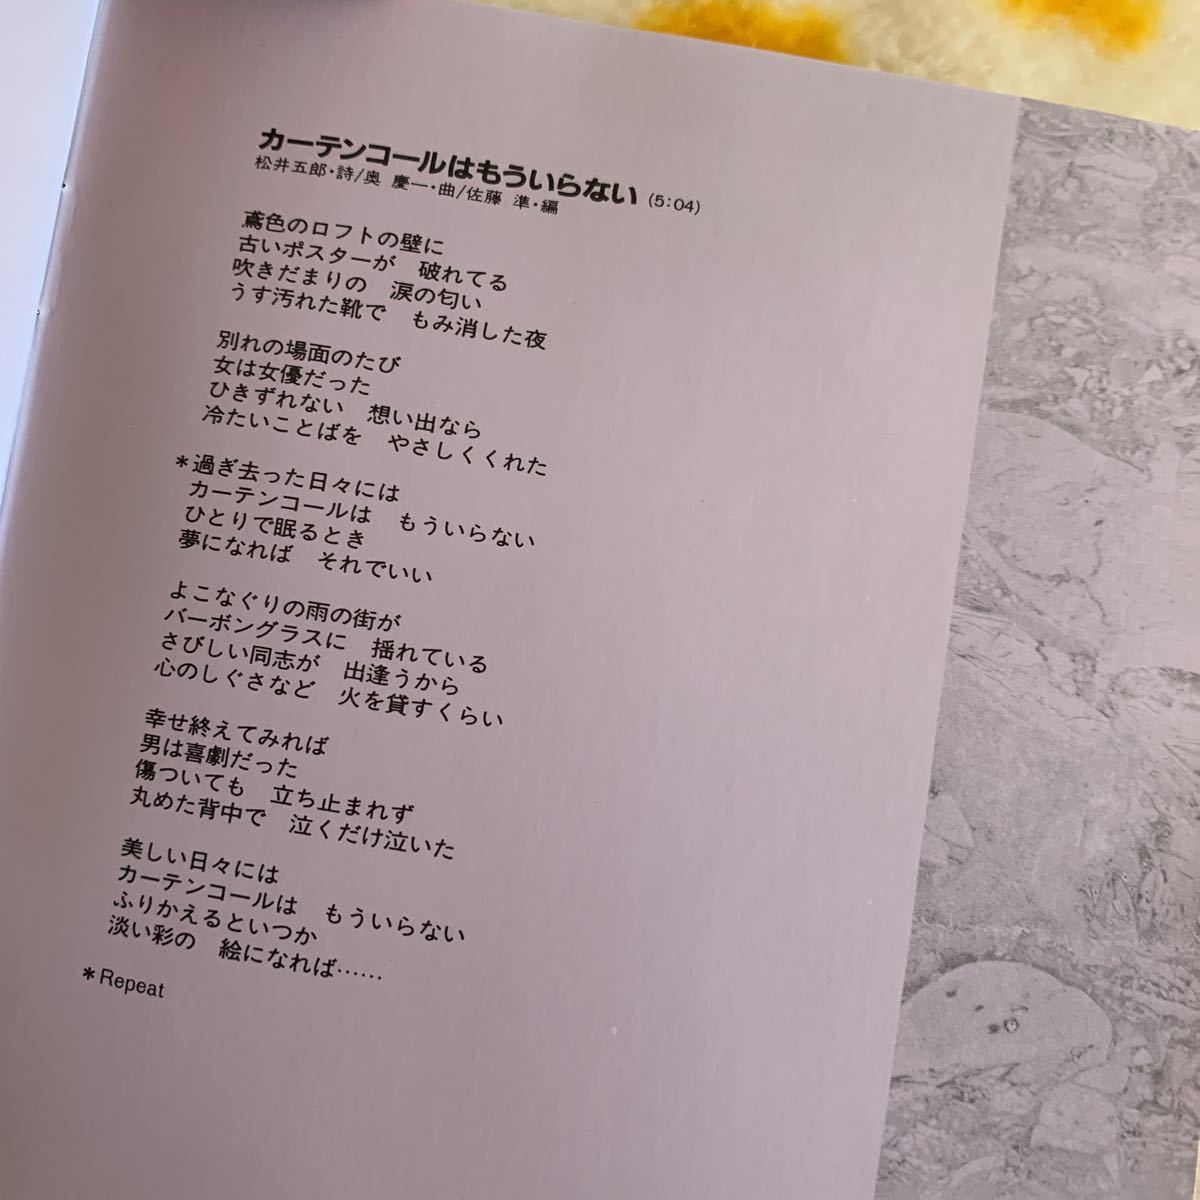 カーテンコールはもういらない (5:04)
松井五郎・詩/奥 慶一・曲/佐藤 準・編
鳶色のロフトの壁に
古いポスターが 破れてる
吹きだまりの 涙の匂い
うす汚れた靴で もみ消した夜
別れの場面のたび
女は女優だった
ひきずれない 想い出なら
冷たいことばを やさしくくれた
*過ぎ去った日々には
カーテンコールは もういらない
ひとりで眠るとき
夢になれば それでいい
よこなぐりの雨の街が
バーボングラスに 揺れている
さびしい同志が 出逢うから
心のしぐさなど 火を貸すくらい
幸せ終えてみれば
男は喜劇だった
傷ついても 立ち止まれず
丸めた背中で 泣くだけ泣いた
美しい日々には
カーテンコールは もういらない
ふりかえるといつか
淡い彩の 絵になれば……
*Repeat